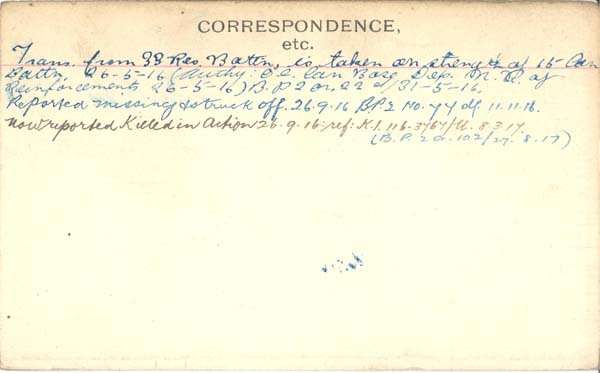 CORRESPONDENCE,
etc.
Trans. from 33 Res. Battn, is taken on strength of 15 Can
Battn. 26-5-16 (Authy. O.C. Can Base Dep. N. R. of
Reinforcements 26-5-16) B.P2 O. 22 d/31-5-16.
Reported missing & struck off. 26.9.16 BP2 No. 44 d/. 11.11.16.
now reported Killed in Action 26.9.16: ref: K.1. 116-3767/U. 8.3.17.
(B.P. 2 O. 102/27.8.17)